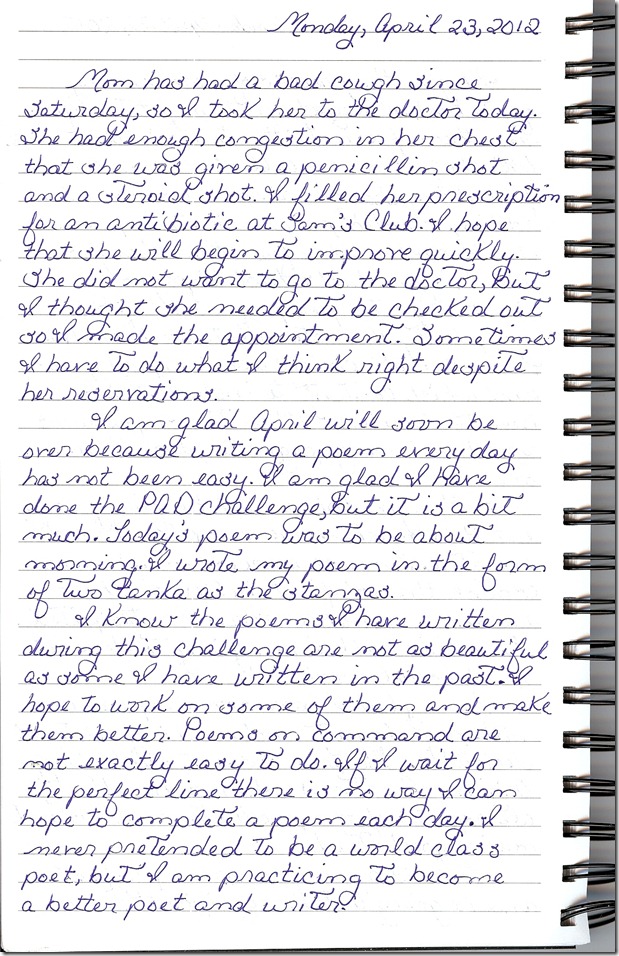 Monday, April 23, 2012
Mom has had a bad cough since
Saturday, so I took her to the doctor today.
She had enough congestion in her chest
that she was given a penicillin shot
and a steroid shot. I filled her prescription
for an antibiotic at Sam's Club. I hope
that she will begin to improve quickly.
She did not want to go to the doctor, but
I thought she needed to be checked out
so I made the appointment. Sometimes
I have to do what I think right despite
her reservations.
I am glad April will soon be
over because writing a poem every day
has not been easy. I am glad I have
done the PAD challenge, but it is a bit
much. Today's poem was to be about
morning. I wrote my poem in the form
of two tanka as the stanzas.
I know the poems I have written
during this challenge are not as beautiful
as some I have written in the past. I
hope to work on some of them and make
them better. Poems on command are
not exactly easy to do. If I wait for
the perfect line there is no way I can
hope to complete a poem each day. I
never pretended to be a world class
poet, but I am practicing to become
a better poet and writer.